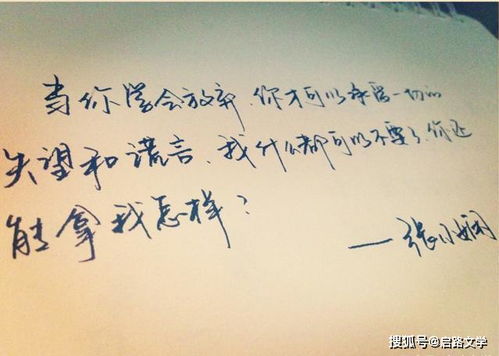 当你学会放弃，你才可以承受一切的
失望和谎言、我什么都可以不要了，你还
能拿我怎样？
——张小娴
搜狐号@启路文学